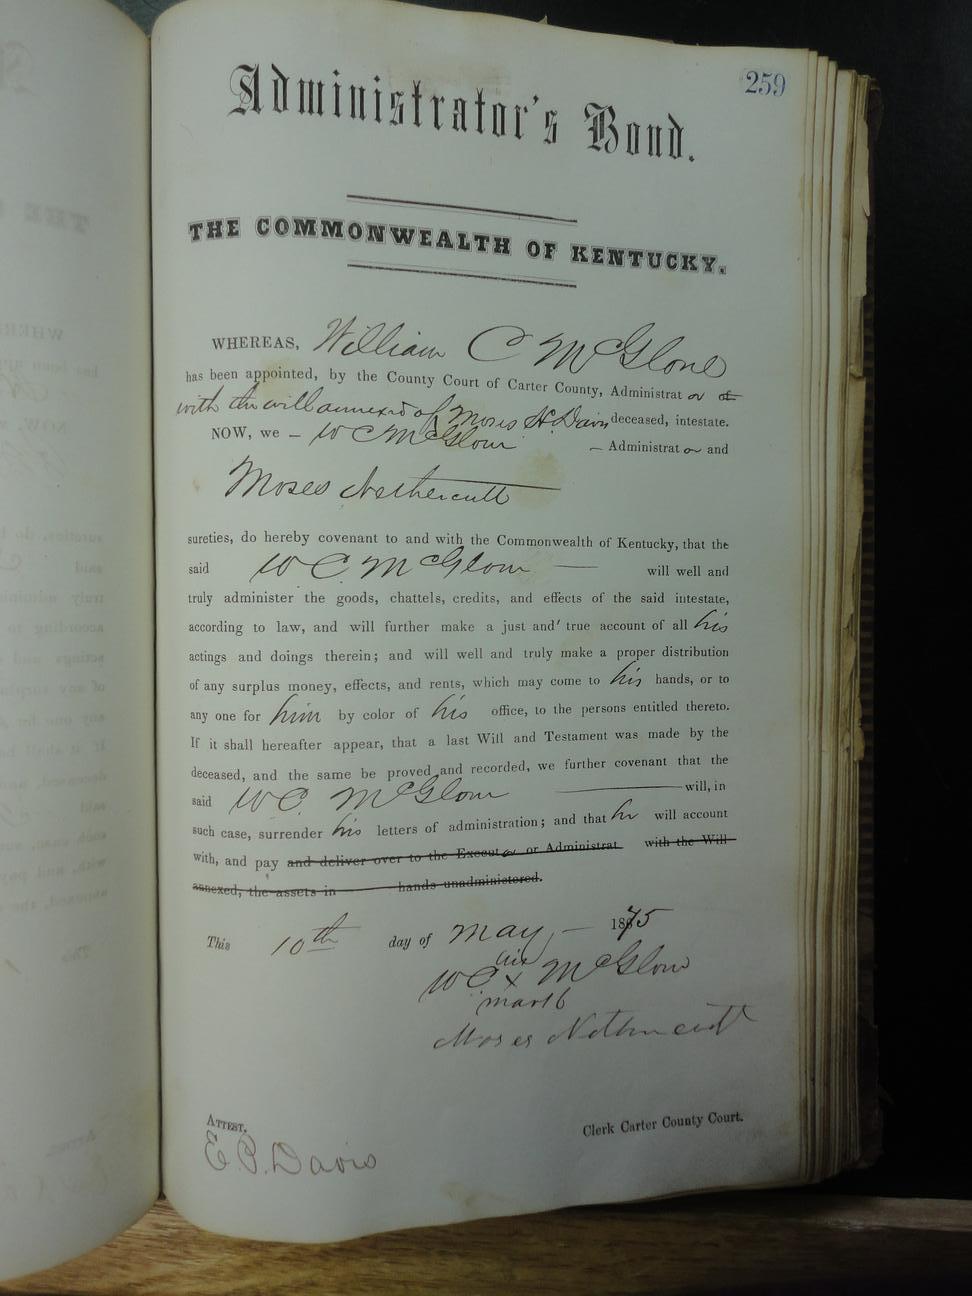 259
Administrator's Bond.
THE COMMONWEALTH OF KENTUCKY.
WHEREAS, William C McGlone
has been appointed, by the County Court of Carter County, Administrat or of
with the will annexed of Moses H Davis deceased, intestate.
NOW, we – W C McGlone – Administrat or and
Moses Nethercutt
sureties, do hereby covenant to and with the Commonwealth of Kentucky, that the
said W C McGlone – will well and
truly administer the goods, chattels, credits, and effects of the said intestate,
according to law, and will further make a just and' true account of all his
actings and doings therein; and will well and truly make a proper distribution
of any surplus money, effects, and rents, which may come to his hands, or to
any one for him by color of his office, to the persons entitled thereto.
If it shall hereafter appear, that a last Will and Testament was made by the
deceased, and the same be proved and recorded, we further covenant that the
said W C McGlone — will, in
such case, surrender his letters of administration; and that he will account
with, and pay and deliver over to the Execut or or Administrat with the Will
annexed, the assets in hands unadministered.
This 10th day of May – 1875
his
W C x McGlone
mark
Moses Nethercutt
ATTEST,
Clerk Carter County Court.
E. P. Davis